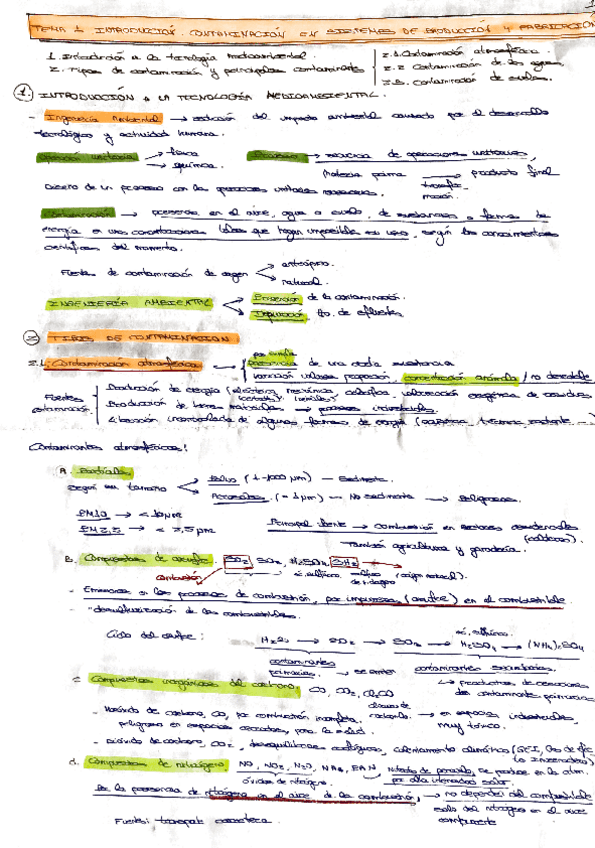 1
TEMA 1. INTRODUCCIÓN. CONTAMINACIÓN EN SISTEMAS DE PRODUCCIÓN Y FABRICACIÓN
1. Introducción a la tecnología medioambiental.
2. Tipos de contaminación y principales contaminantes
2.1. Contaminación atmosférica.
2.2 Contaminación de las aguas.
2.3. Contaminación de suelos.
1. INTRODUCCIÓN A LA TECNOLOGÍA MEDIOAMBIENTAL.
- Ingeniería Ambiental → reducción del impacto ambiental causado por el desarrollo
tecnológico y actividad humana.
Operación unitaria → física
→ química.
Proceso → secuencia de operaciones unitarias
Materia prima → producto final
transfor-
mación.
Diseño de un proceso con las operaciones unitarias necesarias.
Contaminación → presencia en el aire, agua o suelo, de sustancias o formas de
energía en unas concentraciones tales que hagan imposible su uso, según los conocimientos
científicos del momento.
Fuentes de contaminación de origen → antrópico.
→ natural.
INGENIERÍA AMBIENTAL → Prevención de la contaminación.
→ Depuración tto. de efluentes.
2. TIPOS DE CONTAMINACION
2.1. Contaminación atmosférica → presencia de una sustancia
variación proporción, concentración anómala / no deseable
Fuentes
contaminación.
Producción de energía (eléctrica, mecánica, calorífica, valorización energética de residuos
Producción de bienes materiales → procesos industriales
Liberación incontrolada de algunas formas de energía (acústica, térmica, radiante ...)
Contaminantes atmosféricos:
A. Partículas
Según su tamaño → Polvo (1-1000 μm) — Sedimenta.
→ Aerosoles. (= 1 μm) — No sedimenta → Peligrosos.
PM10 → < 10μm
PM2,5 → < 2,5 μm
Principal fuente → combustión en sectores residenciales
(calderas).
También agricultura y ganadería.
B. Compuestos de azufre. SO2, SO3, H2SO4, SH2 →
combustión
ác. sulfúrico (origen natural).
- Emisiones en los procesos de combustión, por impurezas (azufre) en el combustible.
- "desulfurización de los combustibles.
Ciclo del azufre: H2S → SO2 → SO3 → H2SO4 → (NH4)2SO4
ác. sulfúrico
contaminantes
primarios. → se emiten
contaminantes secundarios.
↳ productos de reacciones
de contaminante primario
c. Compuestos inorgánicos del carbono, CO, CO2, Cl2CO
- Monóxido de carbono, CO, por combustión incompleta.
peligroso en espacios cerrados, para la salud.
→ en espacios industriales,
muy tóxico.
- Dióxido de carbono, CO2, desequilibrios ecológicos, calentamiento climático
d. Compuestos de nitrógeno, NO, NO2, N2O, NH3, PAN
óxidos de nitrógeno.
se produce en la atm.
por alta intensidad solar.
Por la presencia de nitrógeno en el aire de la combustión, → no dependen del combustible
solo del nitrógeno en el aire
comburente
Fuentes: transporte carretera.